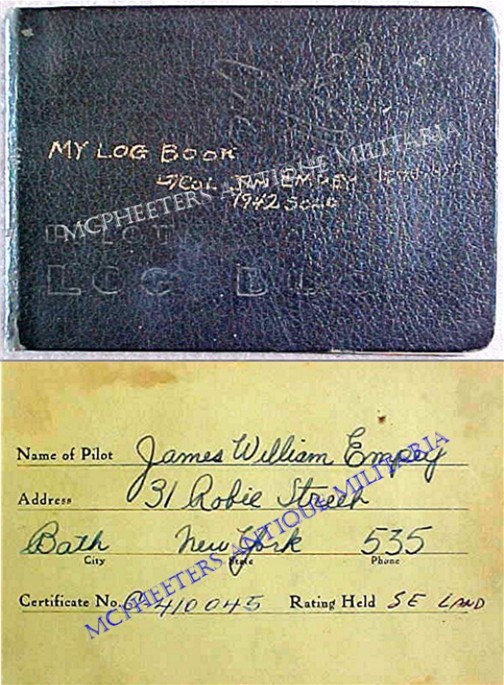 MY LOG BOOK
LT/COL JIM EMPEY
1942 SOLO
PILOT
LOG BOOK
MCPHEETERS ANTIQUE MILITARIA
Name of Pilot James William Empey
Address 31 Robie Street
Bath New York 535
City State Phone
Certificate No. 410045 Rating Held SE LAND
MCPHEETERS ANTIQUE MILITARIA